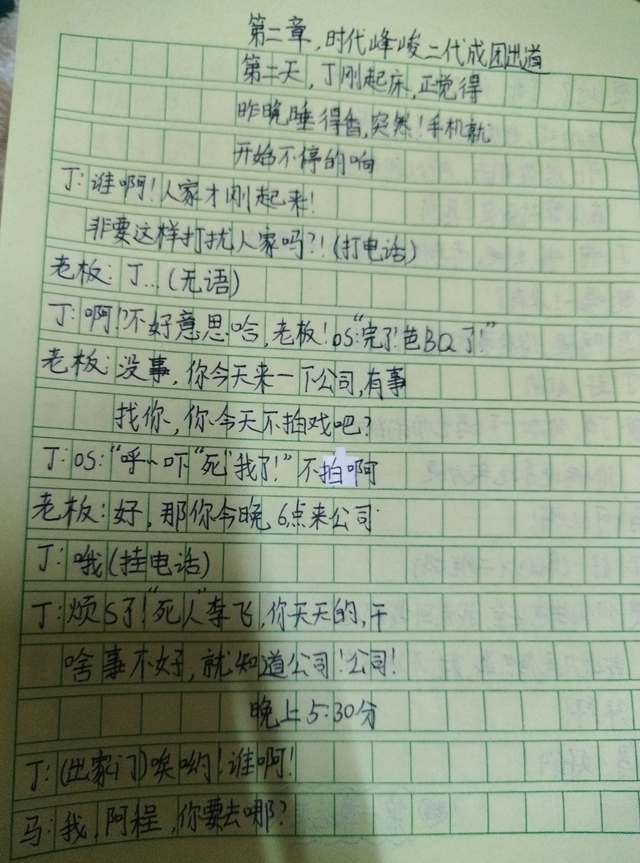 第二章,时代峰峻二代成团出道
第二天,丁刚起床,正觉得
昨晚睡得香,突然!手机就
开始不停的响
丁:谁啊!人家才刚起来!
非要这样打扰人家吗?!(打电话)
老板:丁...(无语)
丁:啊!?不好意思哈,老板!os“完了!芭BQ了!”
老板:没事,你今天来一下公司,有事
找你,你今天不拍戏吧?
丁:os:“呼~吓“死”我了!”不拍啊
老板:好,那你今晚6点来公司
丁:哦(挂电话)
丁:烦S了!“死人”李飞,你天天的,干
啥事不好,就知道公司!公司!
晚上5:30分
丁:(出家门)唉哟!谁啊!
马:我,阿程,你要去哪?